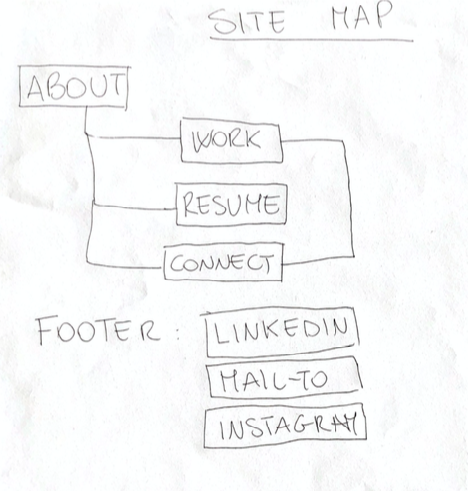 SITE MAP
ABOUT
WORK
RESUME
CONNECT
FOOTER: LINKEDIN
MAIL-TO
INSTAGRAM